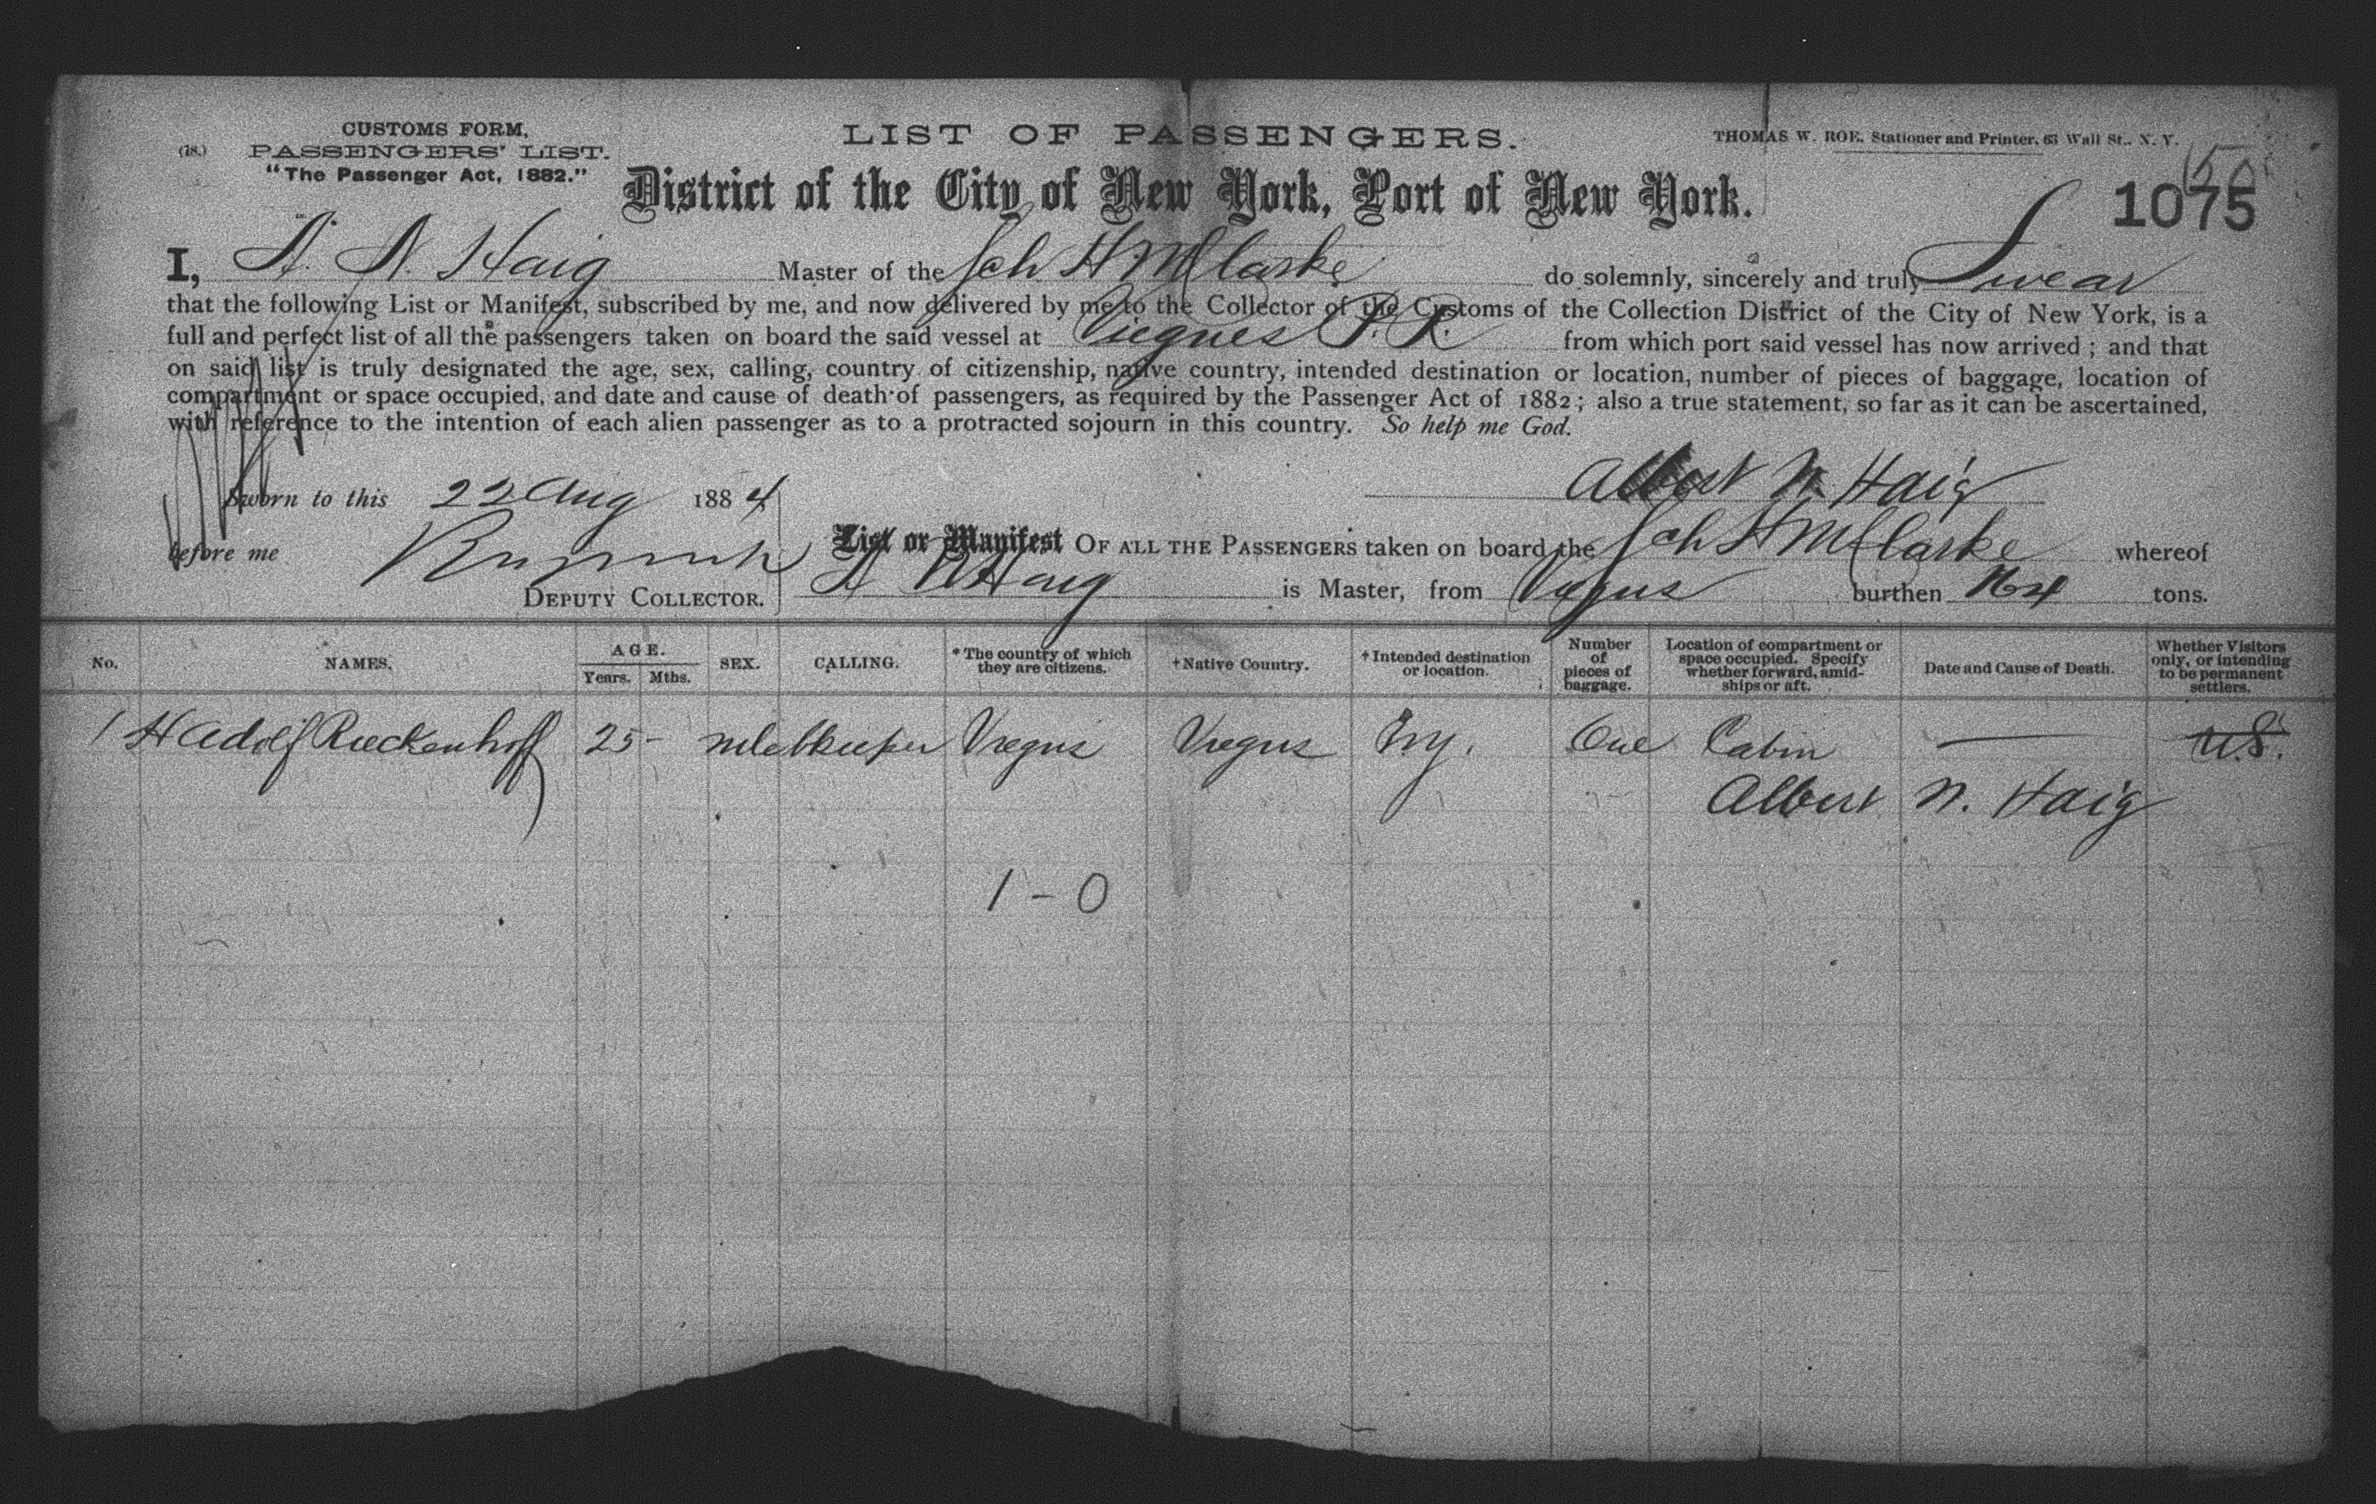 CUSTOMS FORM,
(18.) PASSENGERS' LIST.
"The Passenger Act, 1882."
LIST OF PASSENGERS.
THOMAS W. ROE, Stationer and Printer, 63 Wall St., N. Y.
District of the City of New York, Port of New York.
1075
I, A. N. Haig Master of the Sch H M Clarke do solemnly, sincerely and truly Swear
that the following List or Manifest, subscribed by me, and now delivered by me to the Collector of the Customs of the Collection District of the City of New York, is a
full and perfect list of all the passengers taken on board the said vessel at Viegues P. R. from which port said vessel has now arrived; and that
on said list is truly designated the age, sex, calling, country of citizenship, native country, intended destination or location, number of pieces of baggage, location of
compartment or space occupied, and date and cause of death of passengers, as required by the Passenger Act of 1882; also a true statement, so far as it can be ascertained,
with reference to the intention of each alien passenger as to a protracted sojourn in this country. So help me God.
Albert N. Haig
Sworn to this 22 Aug 1884
before me
DEPUTY COLLECTOR.
List or Manifest OF ALL THE PASSENGERS taken on board the Sch H M Clarke whereof
A N Haig is Master, from Viegus burthen tons.
No. NAMES. AGE. Years. Mths. SEX. CALLING. *The country of which they are citizens. †Native Country. †Intended destination or location. Number of pieces of baggage. Location of compartment or space occupied. Specify whether forward, amidships or aft. Date and Cause of Death. Whether Visitors only, or intending to be permanent settlers.
1 H Adolf Rieckenhoff 25 - mle bkeeper Viegus Viegus Ny. One Cabin — U.S.
Albert N. Haig
1 - 0